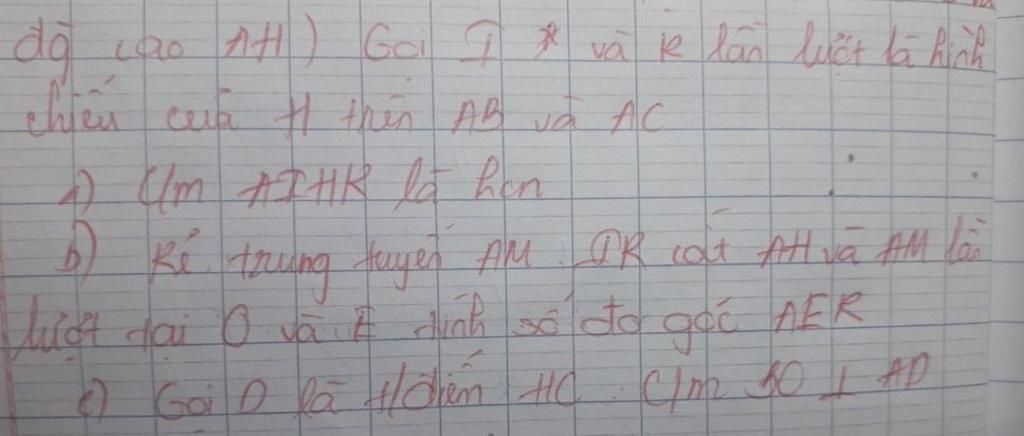 đg cao AH) Gọi I và K lần lượt là hình
chiếu của H trên AB và AC
a) C/m AIHK là hcn
b) Kẻ trung tuyến AM. IK cắt AH và AM lần
lượt tại O và E tính số đo góc AEK
c) Gọi D là t/điểm HC. C/m BO ⊥ AD